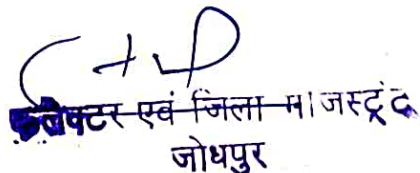 कलेक्टर एवं जिला माजस्ट्रेट
जोधपुर